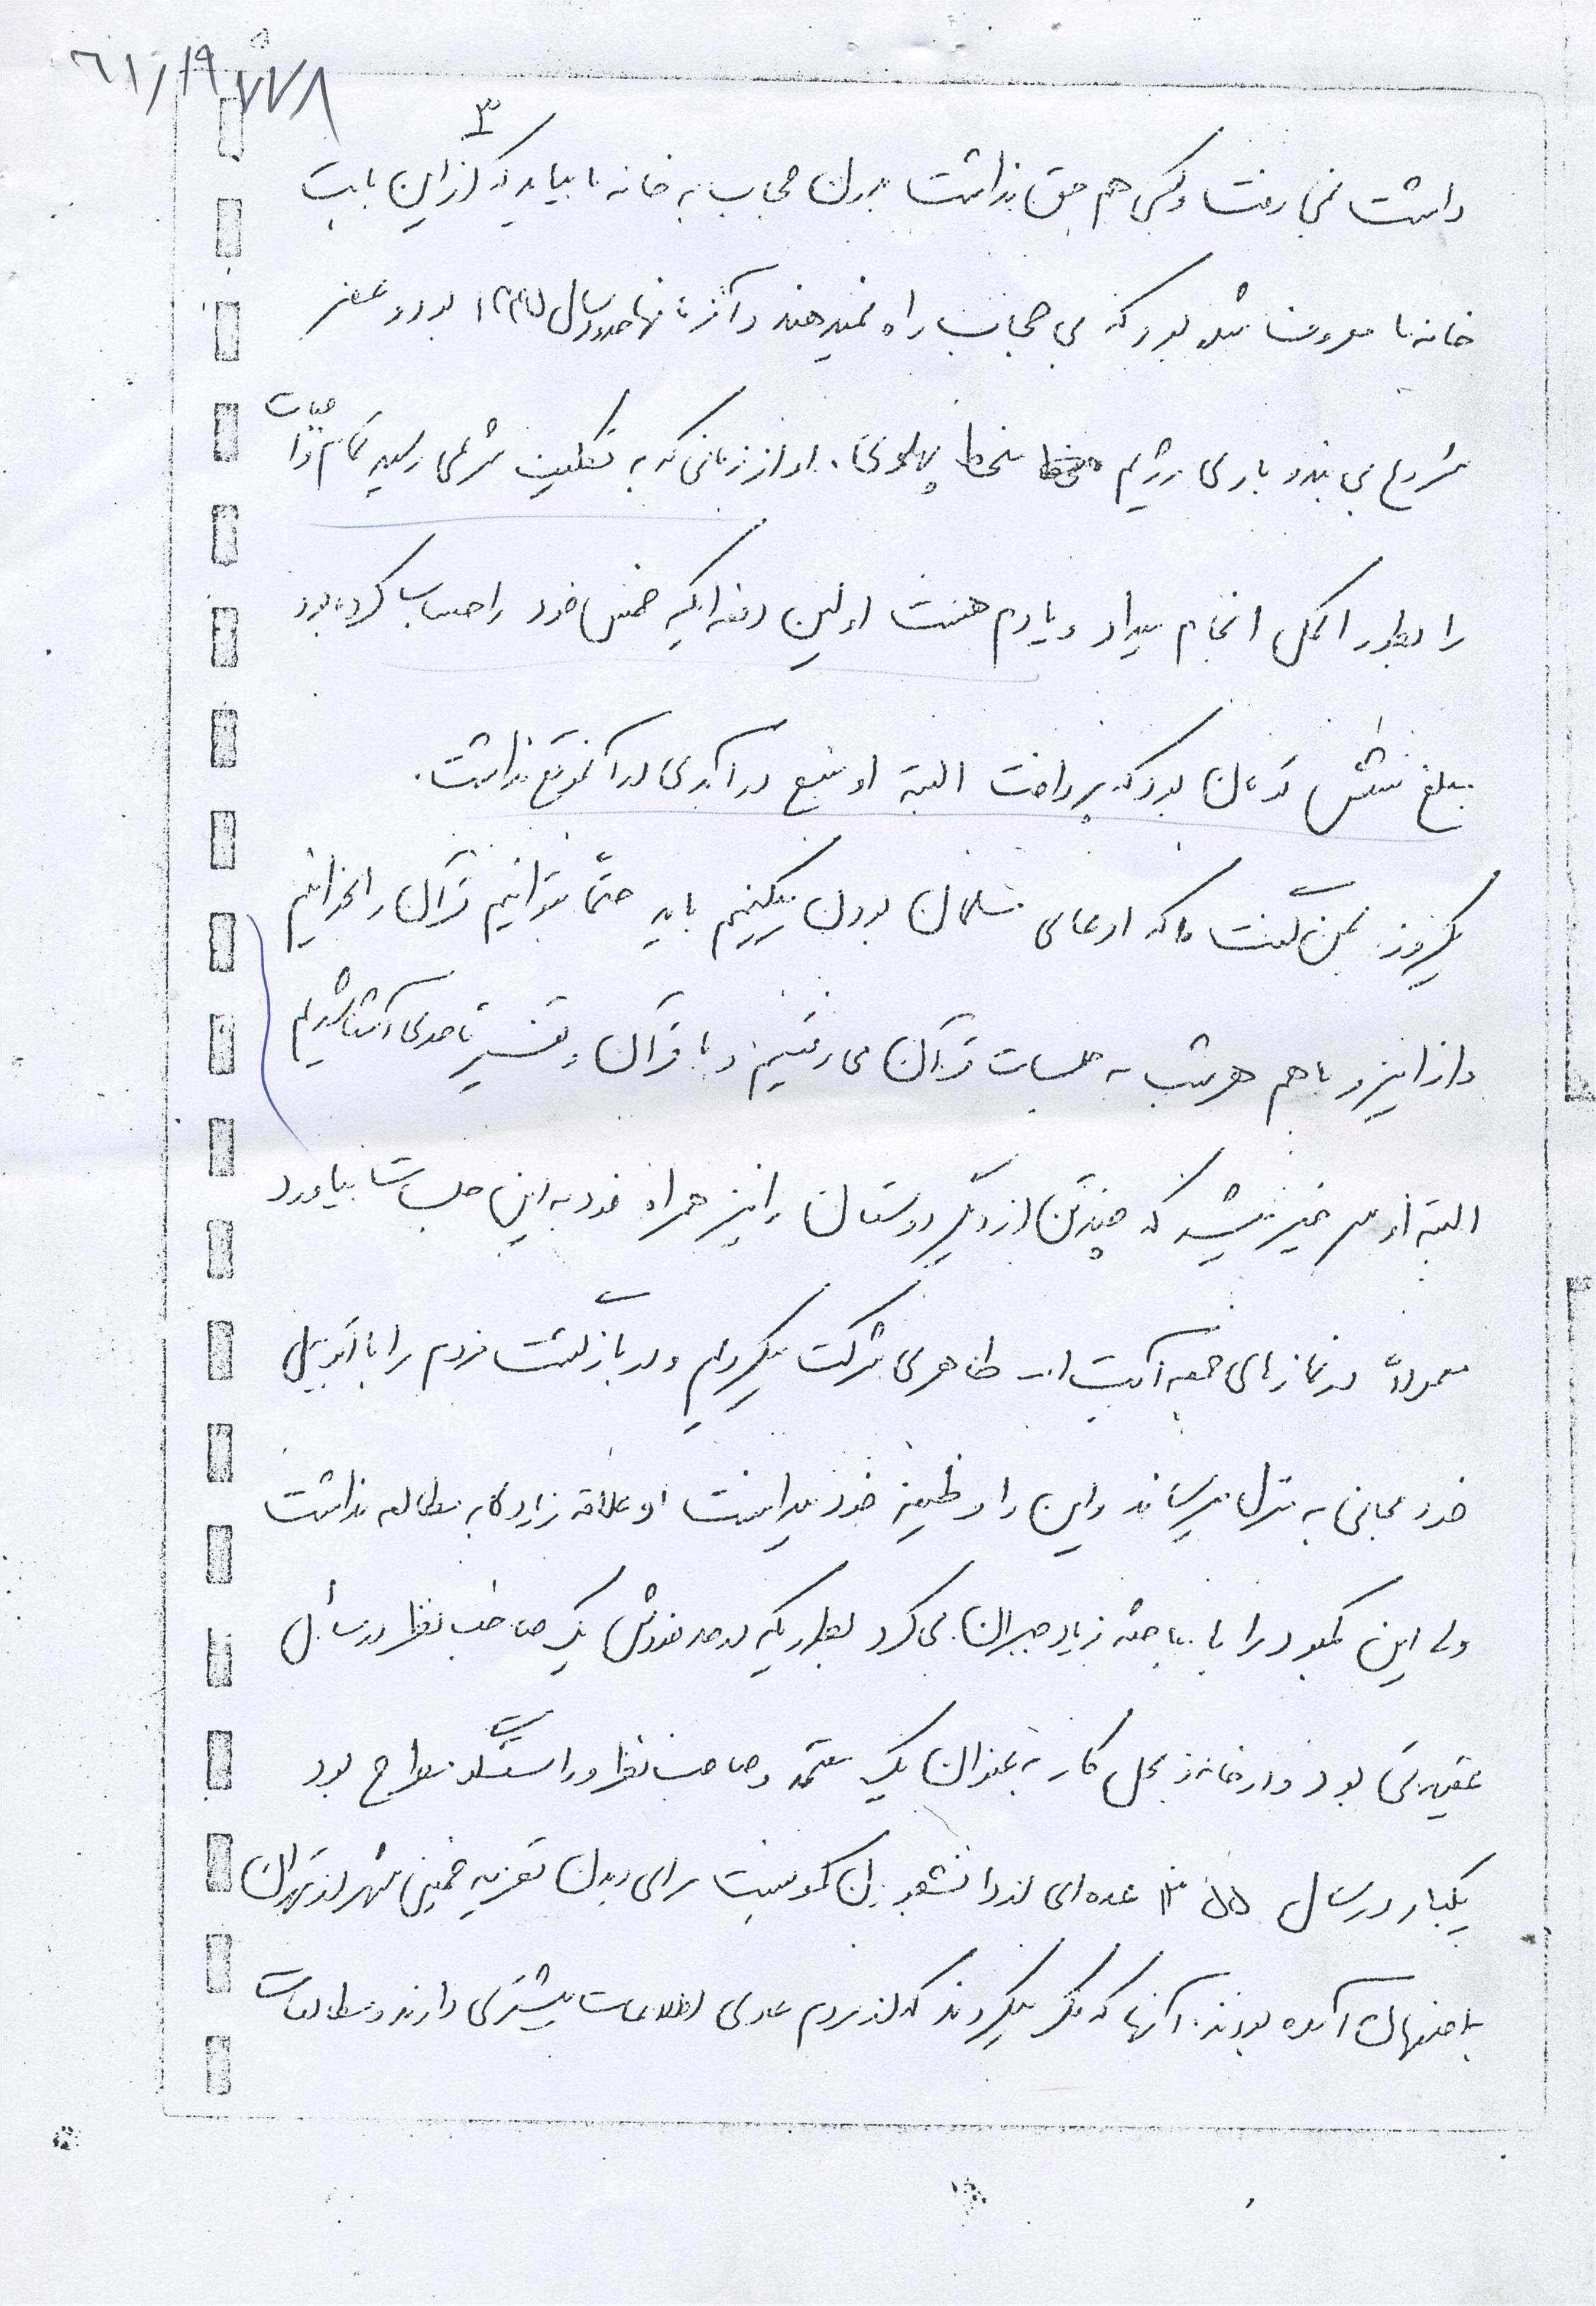 ۳
داشت نمی رفت و کسی هم حق نداشت بدون حجاب به خانه ما بیاید که از این بابت
خانه ما معروف شده بود که بی حجاب راه نمیدهند و آنزمانها حدود سال ۱۳۴۵ بود و عصر
شروع بی بند و باری رژیم منحط پهلوی. او از زمانی که به تکلیف شرعی رسید تمام واجبات
را بطور اکمل انجام میداد و یادم هست اولین دفعه ایکه خمس خود را حساب کرده بود
مبلغ شش تومان بود که پرداخت البته او منبع درآمدی در آنموقع نداشت.
یکروز بمن گفت ما که ادعای مسلمان بودن میکنیم باید حتماً بتوانیم قرآن را بخوانیم
و از اینرو با هم هر شب به جلسات قرآن می رفتیم و با قرآن و تفسیر تا حدی آشنا شدیم
البته او سر خیر میشد که چند تن از دیگر دوستان را نیز همراه خود به این جلسات بیاورد
معمولاً در نمازهای جمعه آیت ا... طاهری شرکت میکردیم و در بازگشت مردم را با اتومبیل
خود مجانی به منزل میرساند و این را وظیفه خود میدانست او علاقه زیادی به مطالعه نداشت
ولی این کمبود را با مباحثه زیاد جبران می کرد بطوریکه در حد خودش یک صاحب نظر در مسائل
عقیدتی بود و در خانه و محل کار به عنوان یک معتمد و صاحب نظر و راستگو مطرح بود
یکبار در سال ۱۳۵۵ عده ای از دانشجویان کمونیست برای دیدن تعزیه خمینی شهر از تهران
به اصفهان آمده بودند. آنها که فکر میکردند که از مردم عادی اطلاعات بیشتری دارند و مطالعات